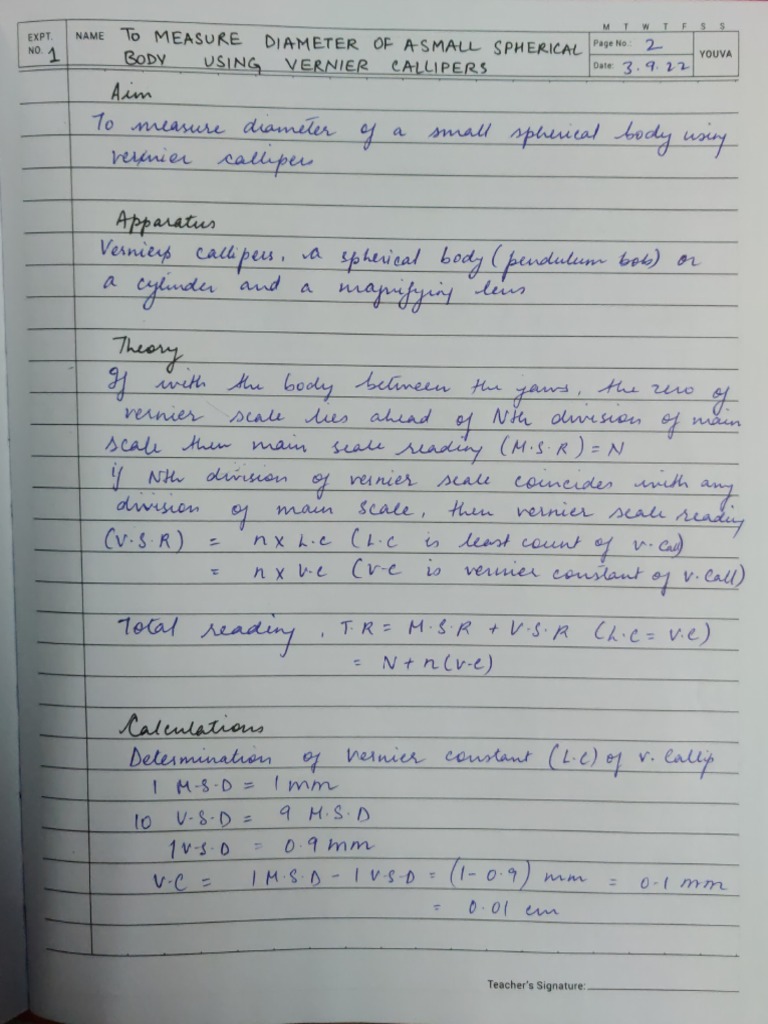 M T W T F S S
EXPT. NO. 1 NAME TO MEASURE DIAMETER OF A SMALL SPHERICAL Page No.: 2 YOUVA
BODY USING VERNIER CALLIPERS Date: 3.9.22
Aim
To measure diameter of a small spherical body using
vernier callipers
Apparatus
Vernier callipers, a spherical body (pendulum bob) or
a cylinder and a magnifying lens
Theory
If with the body between the jaws, the zero of
vernier scale lies ahead of Nth division of main
scale then main scale reading (M.S.R) = N
if Nth division of vernier scale coincides with any
division of main scale, then vernier scale reading
(V.S.R) = n x L.C (L.C is least count of v.cal)
= n x V.C (V.C is vernier constant of v.call)
Total reading, T.R = M.S.R + V.S.R (L.C = V.C)
= N + n(v-c)
Calculations
Determination of vernier constant (L.C) of v. callip
1 M.S.D = 1 mm
10 V.S.D = 9 M.S.D
1 V.S.D = 0.9 mm
V.C = 1 M.S.D - 1 V.S.D = (1-0.9) mm = 0.1 mm
= 0.01 cm
Teacher's Signature: